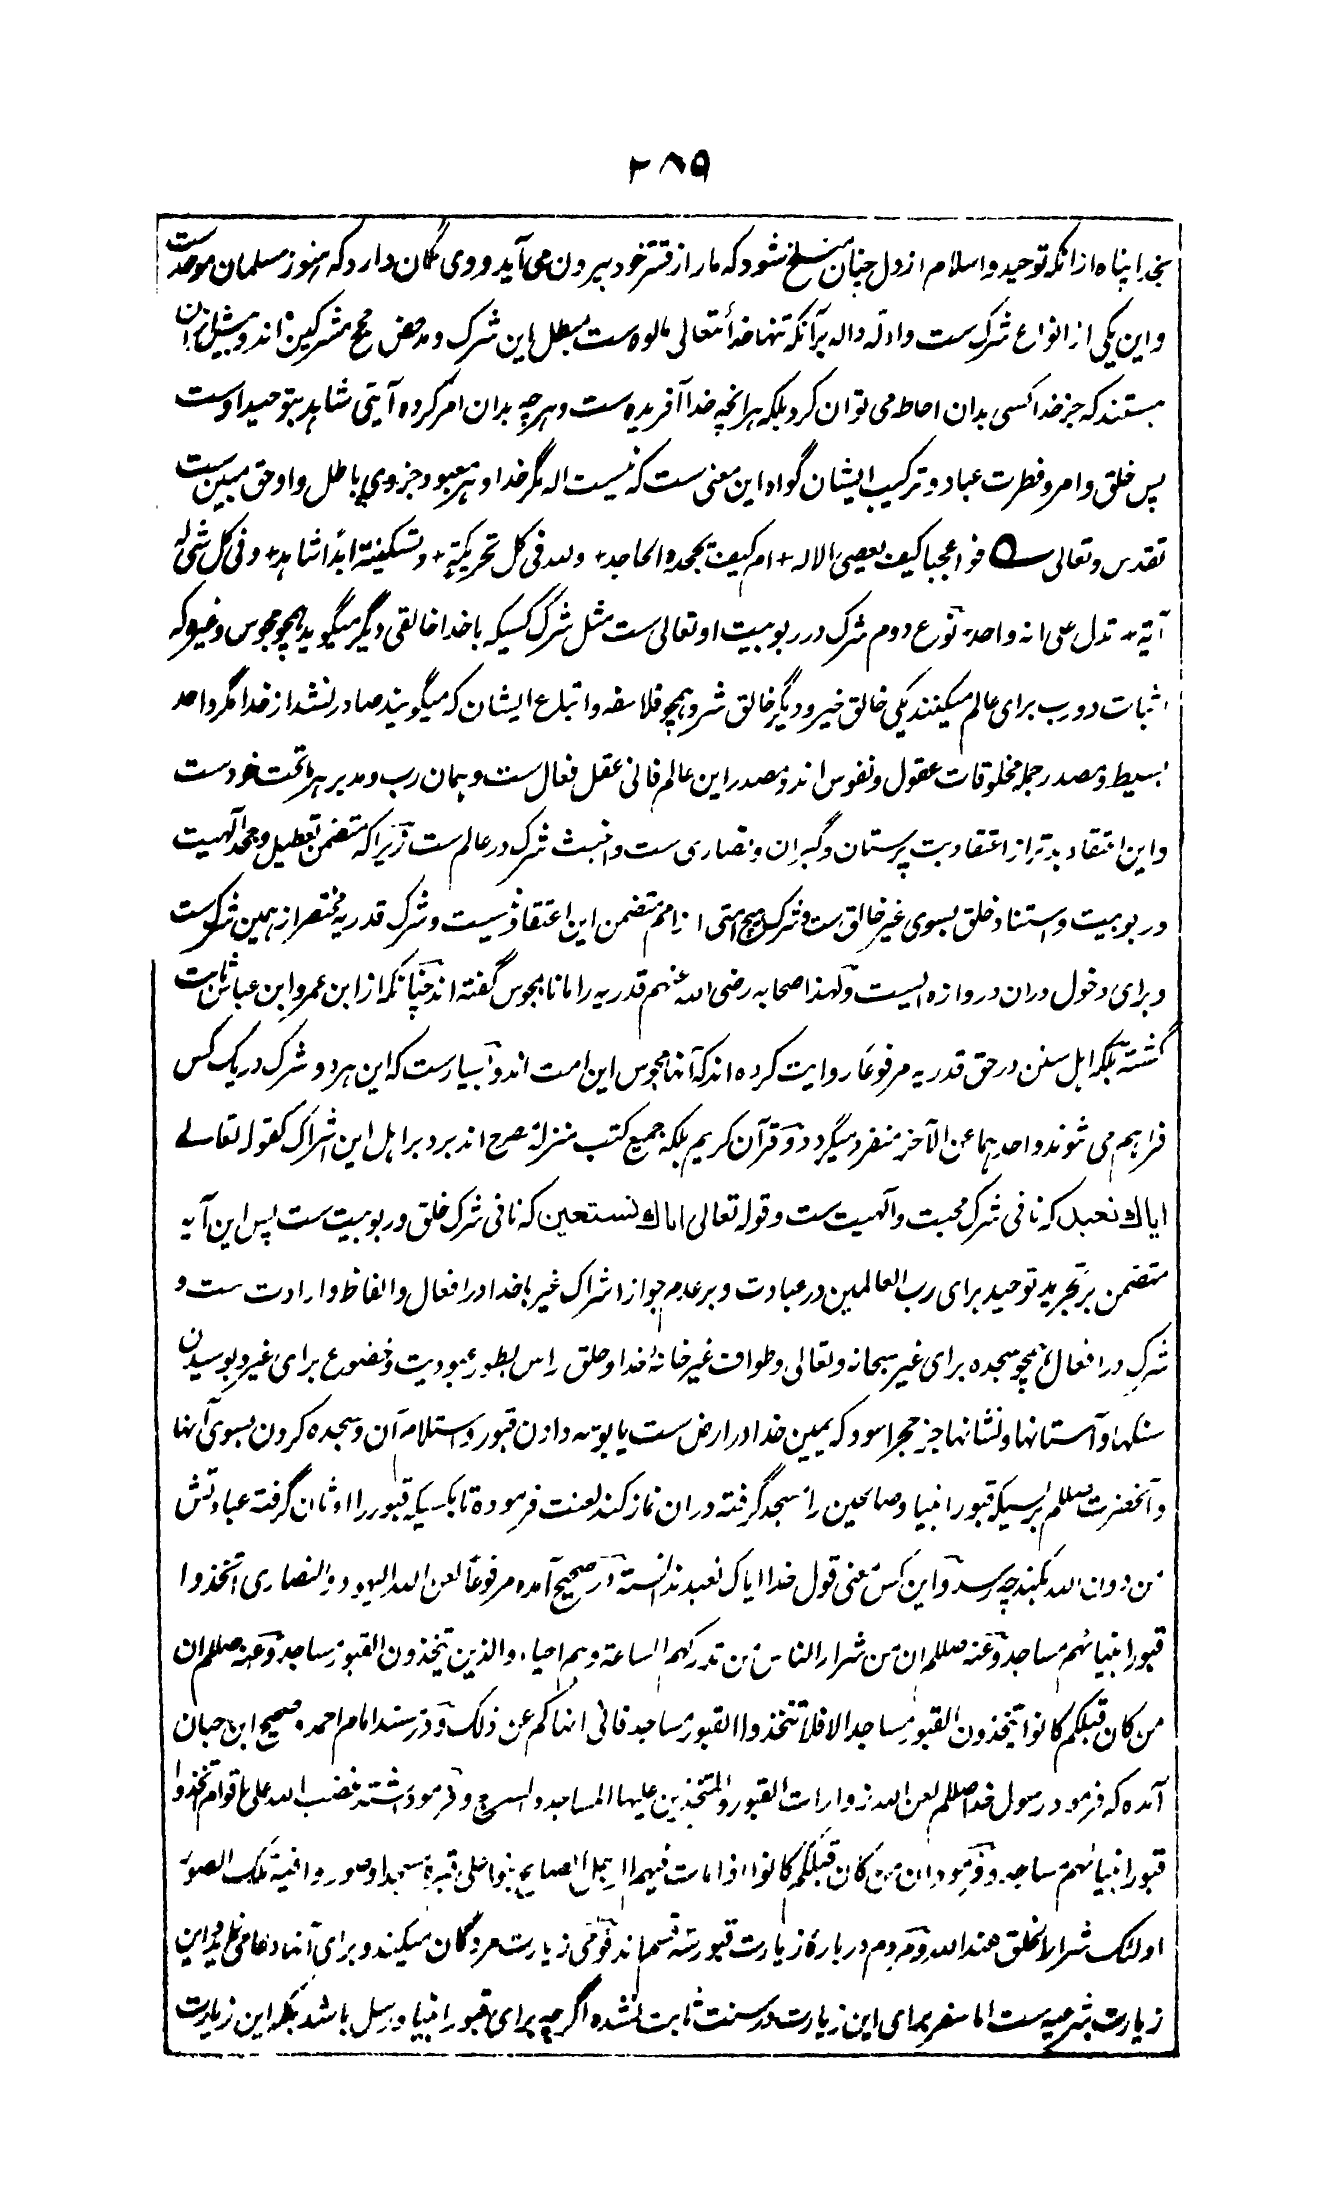 ۲۸۹
بخدا پناه ازانکه توحید و اسلام از دل چنان منسلخ شود که مار از قشر خود بیرون می آید و وی گمان دارد که هنوز مسلمان موحدست
و این یکی از انواع شرک ست و ادله داله برآنکه تنها خدا تعالی مالوه ست مبطل این شرک و مدحض حجج مشرکین اند و بیش ازان
هستند که جز خدا کسی بدان احاطه می توان کرد بلکه هرانچه خدا آفریده ست و هرچه بدان امر کرده آیتی شاهد بتوحید اوست
پس خلق و امر و فطرت عباد و ترکیب ایشان گواه این معنی ست که نیست اله مگر خدا و هر معبود جز وی باطل و او حق مبین ست
تقدس و تعالی ـه فوا عجبا کیف یعصی الاله + ام کیف یجحده الجاحد + ولله فی کل تحریکة + و تسکینة ابدا شاهد + و فی کل شی له
آیة + تدل علی انه واحد + نوع دوم شرک در ربوبیت او تعالی ست مثل شرک کسیکه با خدا خالقی دیگر میگوید همچو مجوس و غیره که
اثبات دو رب برای عالم میکنند یکی خالق خیر و دیگر خالق شر و همچو فلاسفه و اتباع ایشان که میگویند صادر نشد از خدا مگر واحد
بسیط و مصدر جمله مخلوقات عقول و نفوس اند و مصدر این عالم فانی عقل فعال ست و همان رب و مدبر هر ماتحت خودست
و این اعتقاد بدتر از اعتقاد بت پرستان و گبران و نصاری ست و اخبث شرک در عالم ست زیراکه متضمن تعطیل و جحد آلهیت
و ربوبیت و استناد خلق بسوی غیر خالق ست و شرک هیچ امتی از امم متضمن این اعتقاد نیست و شرک قدریه مختصر از همین شرک ست
و برای دخول دران دروازه ایست و لهذا صحابه رضی الله عنهم قدریه را مانا بمجوس گفته اند چنانکه از ابن عمر و ابن عباس ثابت
گشته بلکه اهل سنن در حق قدریه مرفوعا روایت کرده اند که آنها مجوس این امت اند و بسیارست که این هر دو شرک در یک کس
فراهم می شوند و احدهما عن الآخر منفرد میگردد و قرآن کریم بلکه جمیع کتب منزله مصرح اند برد بر اهل این اشراک کقوله تعالے
ایاك نعبد که نافی شرک محبت و آلهیت ست و قوله تعالی ایاك نستعین که نافی شرک خلق و ربوبیت ست پس این آیه
متضمن بر تجرید توحید برای رب العالمین در عبادت و بر عدم جواز اشراک غیر با خدا در افعال و الفاظ و ارادت ست و
شرک در افعال همچو سجده برای غیر سبحانه و تعالی و طواف غیر خانه خدا و حلق راس بطور عبودیت و خضوع برای غیر و بوسیدن
سنگها و آستانها و نشانها جز حجر اسود که یمین خدا در ارض ست یا بوسه دادن قبور و استلام آن و سجده کردن بسوی آنها
و آنحضرت صللم بر کسیکه قبور انبیا و صالحین را مسجد گرفته دران نماز کند لعنت فرموده تا بکسیکه قبور را اوثان گرفته عبادتش
من دون الله بکند چه رسد و این کس معنی قول خدا ایاک نعبد ندانسته در صحیح آمده مرفوعا لعن الله الیهود و النصاری اتخذوا
قبور انبیائهم مساجد و عنه صللم ان من شرار الناس من تدرکهم الساعة و هم احیاء و الذین یتخذون القبور مساجد و عنه صللم ان
من کان قبلکم کانوا یتخذون القبور مساجد الا فلا تتخذوا القبور مساجد فانی انهاکم عن ذلک و در مسند امام احمد و صحیح ابن حبان
آمده که فرمود رسول خدا صللم لعن الله زوارات القبور و المتخذین علیها المساجد و السرج و فرمود اشتد غضب الله علی اقوام اتخذوا
قبور انبیائهم مساجد و فرمود ان من کان قبلکم کانوا اذا مات فیهم الرجل الصالح بنوا علی قبره مسجدا و صوروا فیه تلک الصور
اولئک شرار الخلق عند الله و مردم درباره زیارت قبور سه قسم اند قومی زیارت مردگان میکنند و برای آنها دعا می نمایند این
زیارت شرعیه ست اما سفر برای این زیارت در سنت ثابت نشده اگرچه برای قبور انبیا و رسل باشد بلکه این زیارت